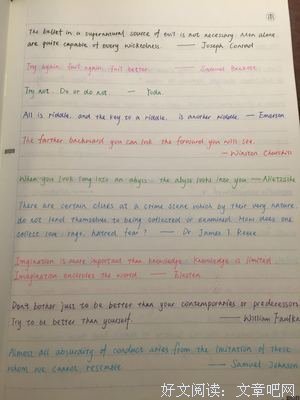 The belief in a supernatural source of evil is not necessary. Men alone
are quite capable of every wickedness. —— Joseph Conrad
Try again. Fail again. Fail better. —— Samuel Beckett
Try not. Do or do not. — Yoda.
All is riddle, and the key to a riddle, is another riddle. — Emerson
The farther backward you can look the forward you will see.
— Winston Churchill
When you look long into an abyss, the abyss looks into you — Nietzsche
There are certain clues at a crime scene which by their very nature
do not lend themselves to being collected or examined. How does one
collect love, rage, hatred, fear? — Dr. James T. Reese
Imagination is more important than knowledge. Knowledge is limited.
Imagination encircles the world. — Einstein
Don't bother just to be better than your contemporaries or predecessors
Try to be better than yourself. —— William Faulkn
Almost all absurdity of conduct aries from the imitation of those
whom we cannot resemble. —— Samuel Johnson
好文阅读:文章吧网